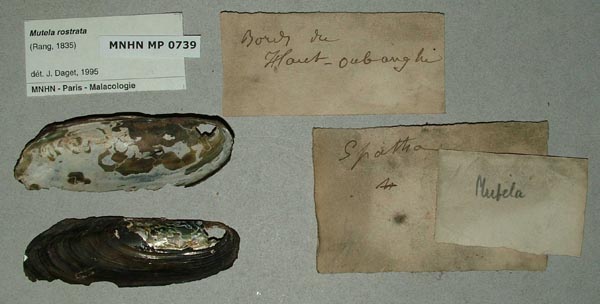 Mutela rostrata
(Rang, 1835)
MNHN MP 0739
dét. J. Daget, 1995
MNHN - Paris - Malacologie
Bords du
Haut-oubanghi
Spatha
4
Mutela